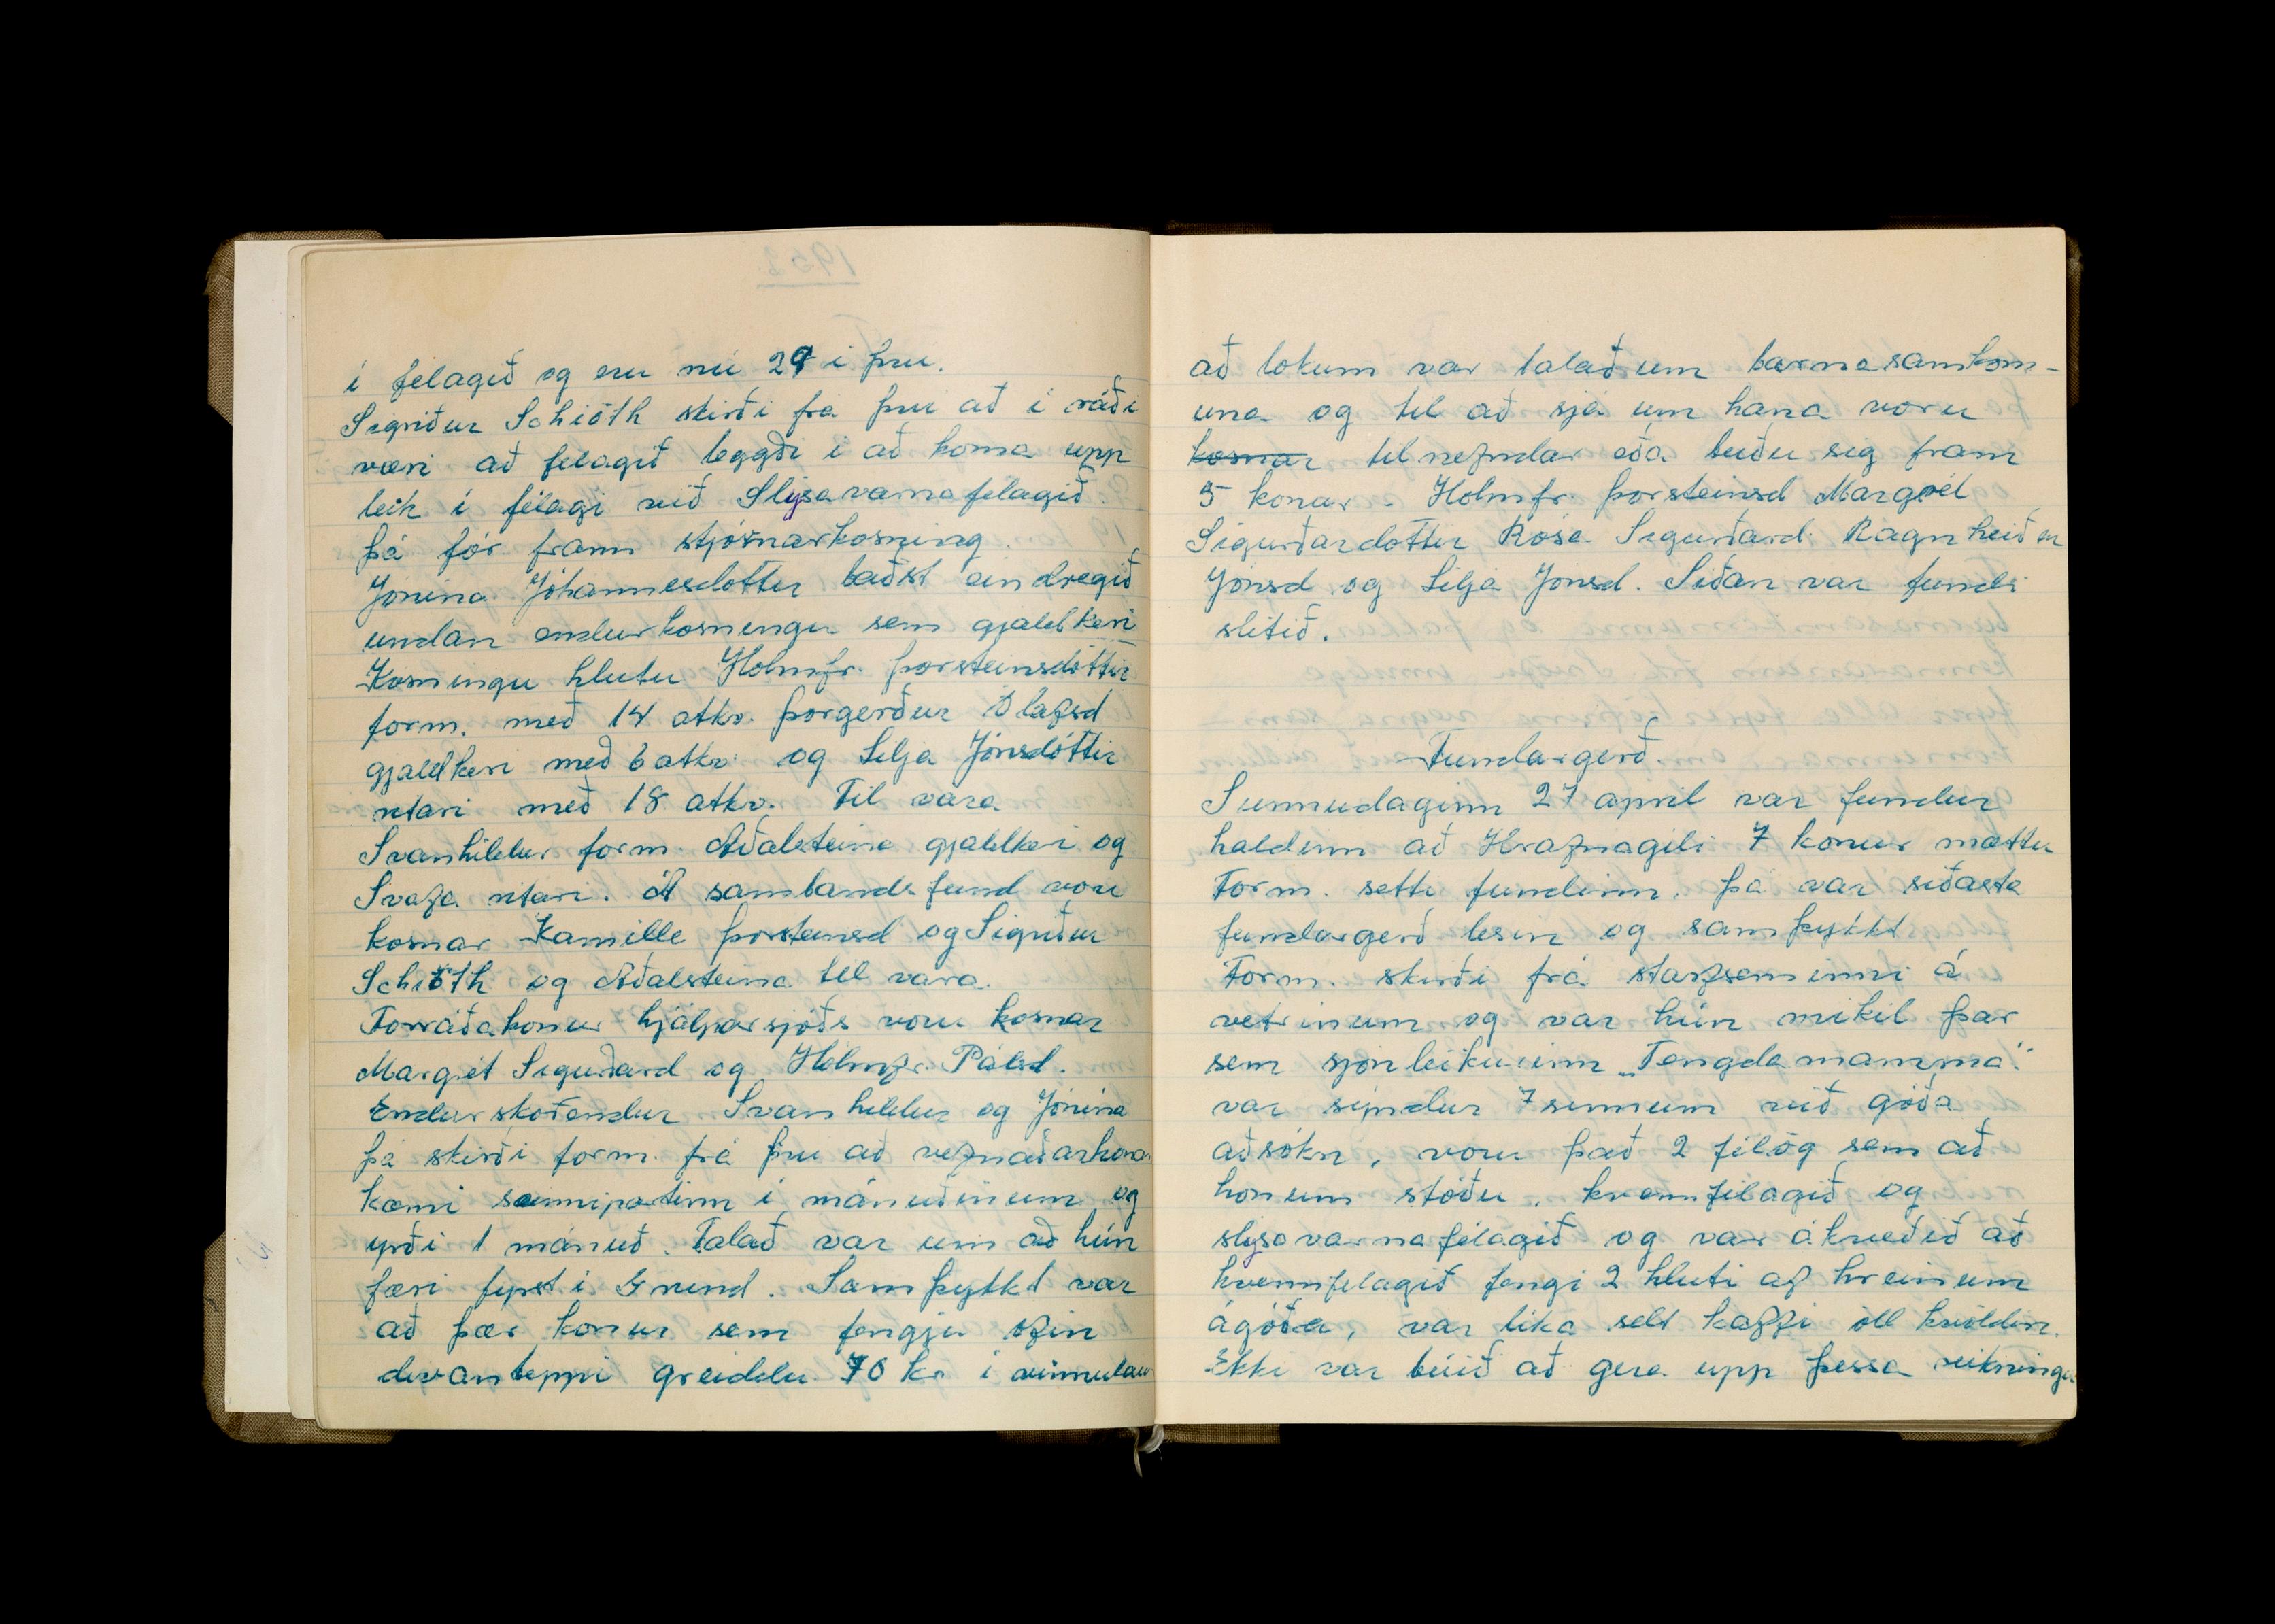 í felagið og eru nú 29 í þvi.
Sigriður Schiöth skirði frá þvi að í ráði
væri að felagið leggði í að koma upp
leik í félagi við Slysavarnafélagið.
Þá fór fram stjórnarkosning.
Jónina Jóhannesdottir baðst eindregið
undan endurkosningu sem gjaldkeri
Kosningu hlutu Holmfr. Þorsteinsdóttir
form. með 14 atkv. Þorgerður Olafsd
gjaldkeri með 6 atkv og Lilja Jónsdóttir
ritari með 18 atkv. Til vara
Svanhildur form. Aðalsteina gjaldkeri og
Svafa ritari. Á sambandsfund voru
kosnar Kamilla Þorsteinsd og Sigriður
Schiöth og Aðalsteina til vara.
Forráðakonur hjálparsjóðs voru kosnar
Margrét Sigurðard og Hólmfr. Pálsd.
Endurskoðendur Svanhildur og Jónina
Þá skirði form. frá þvi að vefnaðarkona
kæmi seinnipartinn í mánuðinum og
yrði 1 mánuð. Talað var um að hún
færi fyrst í Grund. Samþykkt var
að þær konur sem fengju ofin
divanteppi greiddu 70 kr í vinnulaun
að lokum var talað um barnasamkom-
una og til að sjá um hana voru
kosnar tilnefndar eða buðu sig fram
5 konur - Holmfr. Þorsteinsd Margrét
Sigurðardottir Rósa Sigurðard. Ragnheiður
Jónsd og Lilja Jónsd. Siðan var fundi
slitið.
Fundargerð.
Sunnudaginn 27 april var fundur
haldinn að Hrafnagili 7 konur mættu
Form. setti fundinn. Þá var siðasta
fundargerð lesin og samþykkt
Form. skirði frá starfseminni á
vetrinum og var hún mikil þar
sem sjónleikurinn „Tengdamamma"
var sýndur 7 sinnum við góða
aðsókn, voru það 2 félög sem að
honum stóðu, kvennfélagið og
slysavarnafélagið og var ákveðið að
kvennfelagið fengi 2 hluti af hreinum
ágóða, var lika selt kaffi öll kvöldin.
Ekki var búið að gera upp þessa reikninga